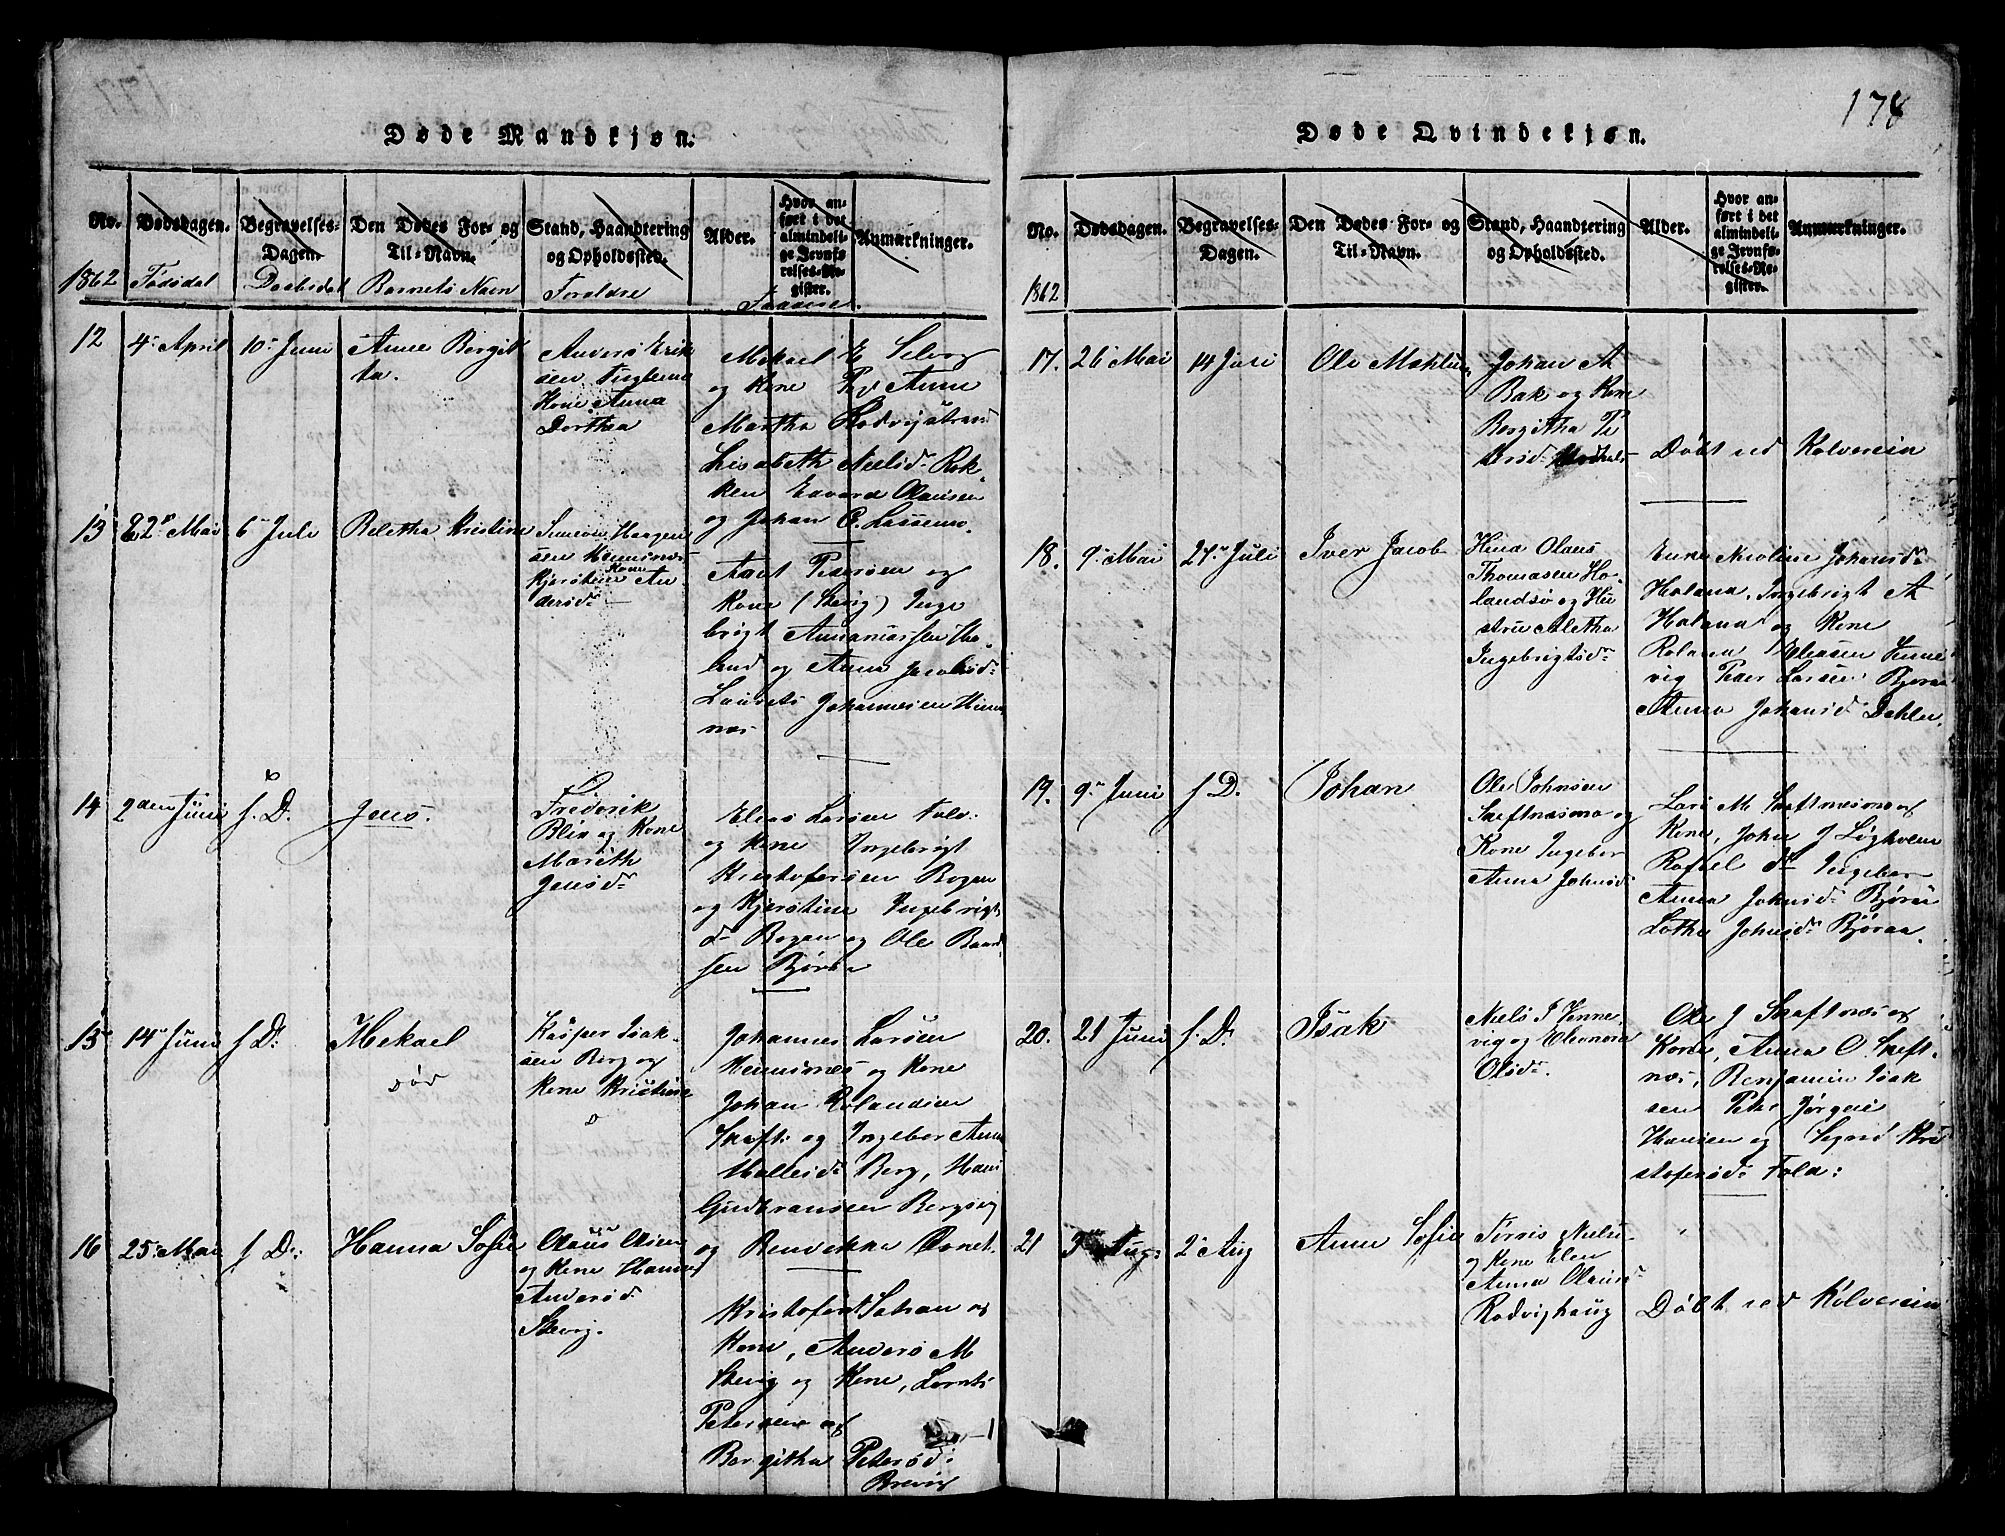 Døde Mandkjøn.
No. Dødsdagen. Begravelses-Dagen. Den Dødes For- og Til-Navn. Stand, Haandtering og Opholdssted. Alder. Hvor anført i det almindelige Jevnførelses-Register. Anmærkninger.
1862 Fødsdat Daabsdat Barnets Navn Foreldre Faddere
12 4de April 10de Juni Anne Bergit
ta.
Anders Erik
sen
Kone Anna
Dorthea
Mekael E Selvog
og Kone Anne
Martha Rodvigstrand
Lisabeth Neelsd: Rek
ken Edvard Olausen
og Johan O. Lassemo.
13 22de Mai 6te Juli Beletha Kristine
Simeon Haagen
sen Hennisnæs
Kone
Kjerstine An
dersd:
Axel Pedersen og
Kone (Skevig) Inge
brigt Annaniassen Ha
land og Anna Jacobsd:
Laurits Johannesen Hinni
næs
14 2den Juni f. D. Jens.
Frederik
Blix og Kone
Mareth
Jensd:
Elias Larsen Fold
og Kone Ingebrigt
Kristofersen Bogen
og Kjerstine Ingebrigt
d: Bogen og Ole Baard
sen Bjøraa
15 14de Juni f D: Mekael
Død
Kasper Isak-
sen Berg og
Kone Kristine
Johannes Larsen
Hennisnæs og Kone
Johan Rolandsen
Skeft: og Ingebor Anna
Hallesd: Berg, Hans
Gudbransen Bergsvig
og Renvekka Ornet.
16 25de Mai f D: Hanna Sofie
Olaus Olsen
og Kone Hanna
Andersd:
Skevig.
Kristofer Sahan og
Kone, Anders M
Skevig og Kone, Lornts
Petersen og
Bergitha Petersd:
Brevig
178
Døde Qvindekjøn.
No. Dødsdagen. Begravelses-Dagen. Den Dødes For- og Til-Navn. Stand, Haandtering og Opholdssted. Alder. Hvor anført i det almindelige Jevnførelses-Register. Anmærkninger.
1862
17. 26 Mai 14 Juli Ole Mathias
Johan A
Bak og Kone
Bergitha Pe
tersd:
Døbt ved Kolverein
18. 9de Mai 27de Juli Iver Jacob
Olaus
Thomasen Ho
landsø og Hu
stru Aletha
Ingebrigtsd:
Enke Nicoline Johansd:
Haland, Ingebrigt A
Haland og Kone
Roland Eliasen Venne
vig Peder Larsen Bjøraa
Anna Johansd: Dahlen.
19. 9de Juni f D. Johan
Ole Johnsen
Skeftnæsmo og
Kone Ingebor
Anna Johnsd:
Lars M Skeftnæsmo og
Kone, John J Løgholm
Rafael d: Ingebor
Anna Johnsd: Bjøraa
Lothe Johnsd: Bjøraa.
20. 21 Juni f. D. Isak
Niels J Venne
vig og Eleonora
Olsd:
Ole J Skeftnæs og
Kone, Anna O. Skeft-
næs, Benjamin Isak
sen Peter Jørgen
Hansen og Signd Kri
stofersd: Fold:
21 3de Aug: 2de Aug Anne Sofie
Tørris Nielsen
og Kone Elen
Anna Olausd:
Rodvighaug
Døbt ved Kolverein